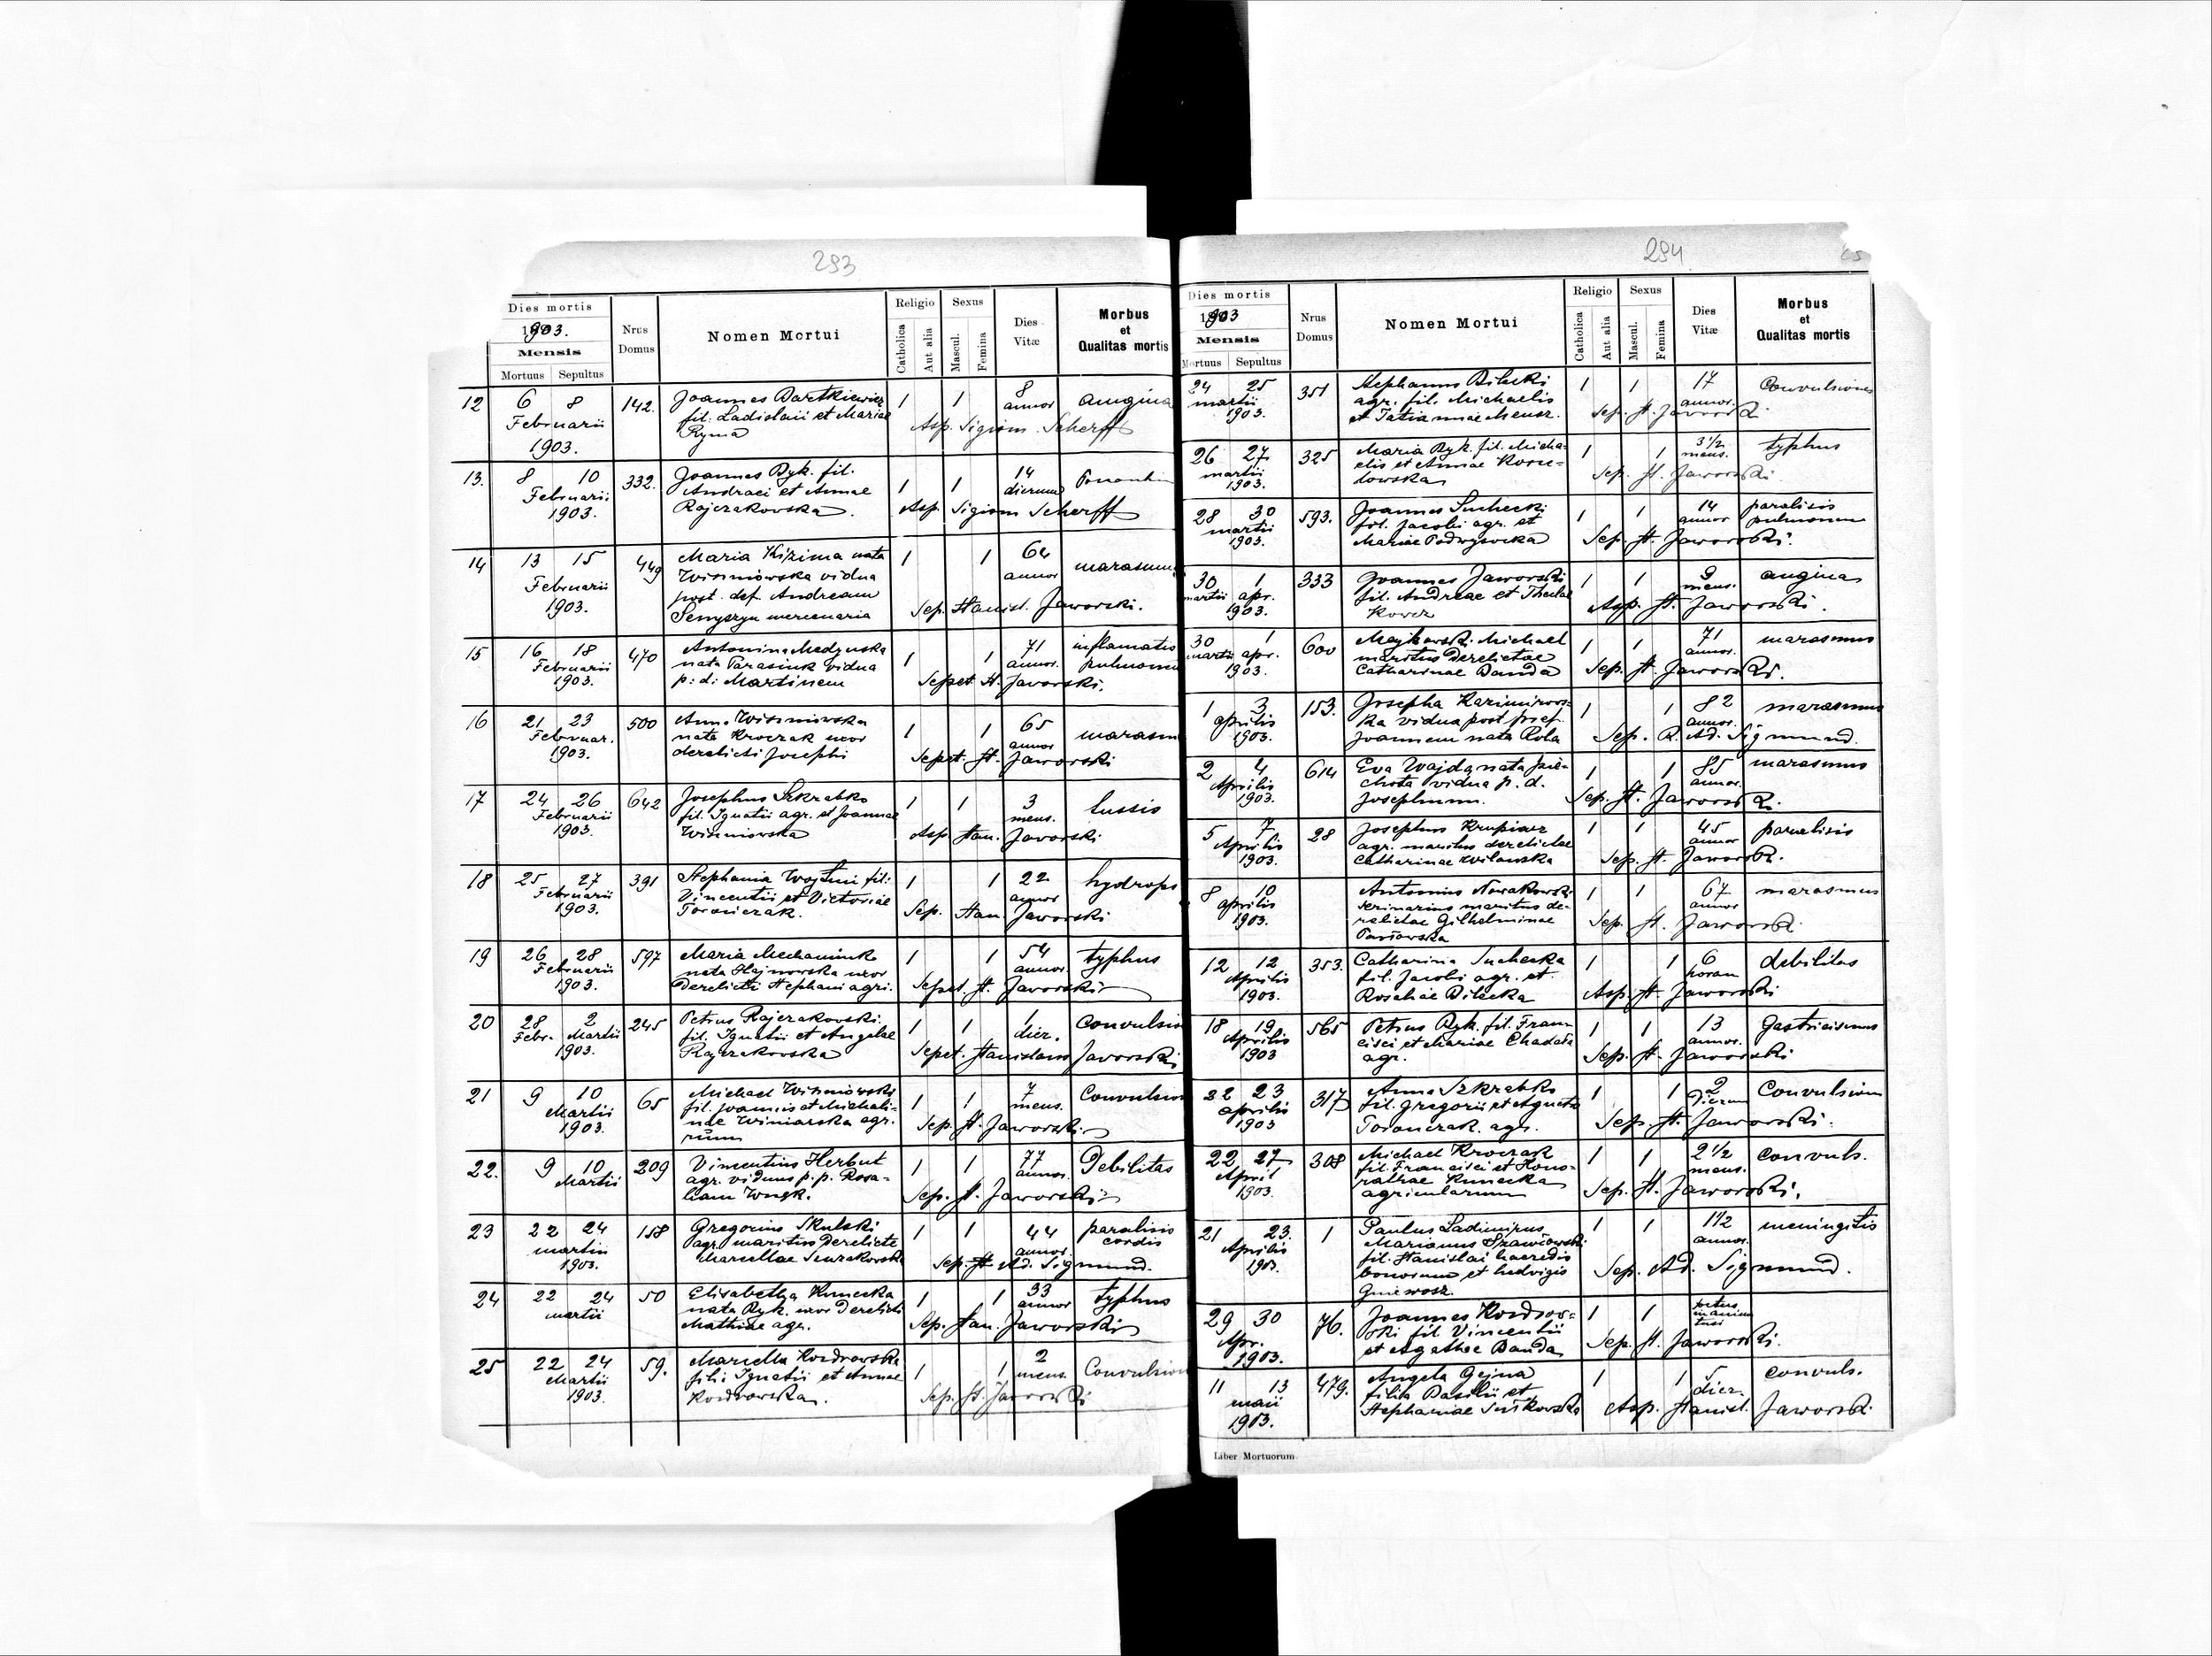 293
Dies mortis
1903.
Mensis
Mortuus Sepultus
Nrus Domus
Nomen Mortui
Religio
Catholica
Aut alia
Sexus
Mascul.
Femina
Dies Vitæ
Morbus et Qualitas mortis
12 6 8 142. Joannes Bartkiewicz 1 1 8 angina
Februarii fil. Ladislaii et Mariae annor
1903. Ryma Asp. Sigism. Scherff
13. 8 10 332. Joannes Byk. fil. 1 1 14
Februarii Andraei et Annae dierum
1903. Rajczakovska Asp. Sigism Scherff
14 13 15 449 Maria Kizima nata 1 1 64 marasmus
Februarii Wiśniowska vidua annor
1903. post. def. Andream
Senyszyn mercenaria Sep. Stanisl. Jaworski.
15 16 18 470 Antonina Medynska 1 1 71 inflamatio
Februarii nata Parasiuk vidua annor. pulmonum
1903. p: d: Martinem Sepet St. Javorski.
16 21 23 500 Anna Wiśniowska 1 1 65 marasm
Februar. nata Kroczak uxor annor
1903. derelicti Josephi Sepet. St. Jaworski
17 24 26 642 Josephus Szkrabko 1 1 3 tussis
Februarii fil. Ignatii agr. et Joannae mens.
1903. Wiśniowska Asp. Stan. Javorski
18 25 27 391 Stephania Wojtun fil: 1 1 22 hydrops
Februarii Vincentii et Victoriae annor
1903. Torończak. Sep. Stan. Jaworski
19 26 28 597 Maria Mechaniuk 1 1 54 typhus
Februarii nata Hajnowska uxor annor.
1903. Derelicti Stephani agri. Sepet. St. Javorski
20 28 2 245 Petrus Rajczakovski. 1 1 1 Convulsio
Febr. Martii fil. Ignatii et Angelae dier.
1903. Rajczakovska Sepet. Stanislaus Javorski
21 9 10 65 Michael Wiśniowski 1 1 7 Convulsion
Martii fil. Joannis et Michali- mens.
1903. nae Winiarska agr.
rum Sep. St. Jaworski
22. 9 10 209 Vincentius Herbut 1 1 77 Debilitas
Martii agr. viduus p. p. Rosa- annor.
liam Sep. St. Javorski
23 22 24 158 Gregorius Skulski 1 1 44 paralisis
martii agr. maritus Derelicte annor. cordis
1903. Marcellae Sep. St Ad. Sigmund.
24 22 24 50 Elisabetha Kunecka 1 1 33 typhus
martii nata Byk. uxor Derelicti annor
Mathiae agr. Sep. Stan. Jaworski
25 22 24 59. Marcella Kozdrowska 1 1 2 Convulsion
Martii fili: Ignatii et Annae mens.
1903. Kozdrowska. Sep. St. Jaworski
294
65
Dies mortis
1903
Mensis
Mortuus Sepultus
Nrus Domus
Nomen Mortui
Religio
Catholica
Aut alia
Sexus
Mascul.
Femina
Dies Vitæ
Morbus et Qualitas mortis
24 25 351 Stephanus Bilecki 1 1 17 Convulsiones
martii agr. fil. Michaelis annor.
1903. et Tatiannae Sep. St. Javorski.
26 27 325 Maria Byk. fil. Micha- 1 1 3 1/2 typhus
martii elis et Annae mens.
1903. lowska Sep. St. Jaworski.
28 30 593. Joannes Suchecki 1 1 14 paralisis
martii fil. Jacobi agr. et annor pulmonum
1903. Mariae Podwysocka Sep. St. Jaworski.
30 1 333 Joannes Jaworski 1 1 9 angina
martii apr. fil. Andreae et Theclae mens.
1903. Kowcz Asp. St. Jaworski.
30 1 600 Majkowski Michael 1 1 71 marasmus
martii apr. maritus Derelictae annor.
1903. Catharinae Banda Sep. St. Jaworski.
1 3 153. Josepha Kazimirows- 1 1 82 marasmus
aprilis ka vidua post annor.
1903. Joannem nata Rola Sep. R. Ad. Sigmund.
2 4 614 Eva Wajda nata Pie- 1 1 85 marasmus
Aprilis chota vidua p. d. annor.
1903. Josephum. Sep. St. Jaworski.
5 7 28 Josephus Krupiarz 1 1 45 paralisis
Aprilis agr. maritus derelictae annor
1903. Catharinae Wilanska Sep. St. Jaworski.
8 10 Antonius Nowakowski 1 1 67 marasmus
aprilis maritus de- annor
1903. relictae Gilhelminae
Sep. St. Jaworski
12 12 353. Catharina Suchecka 1 1 6 debilitas
Aprilis fil. Jacobi agr. et horam
1903. Rosaliae Bilecka Asp. St. Jaworski
18 19 565 Petrus Byk. fil. Fran- 1 1 13 Gastricismus
Aprilis cisci et Mariae Chadała annor.
1903 agr. Sep. St. Jaworski
22 23 317 Anna Szkrabko 1 1 2 Convulsion
aprilis fil. Gregorii et Agnetis Dierum
1903 Torończak. agr. Sep. St. Jaworski.
22 27 308 Michael Kroczak 1 1 2 1/2 convuls.
April fil. Francisci et Hono- mens.
1903. rathae Kunecka
agricolarum Sep. St. Jaworski.
21 23. 1 Paulus Ladimirus 1 1 1 1/2 meningitis
Aprilis Marianus annor.
1903. fil. Stanislai haeredis
bonorum et hedvigis Sep. Ad. Sigmund.
Gniewosz.
29 30 76. Joannes Kozdrow- 1 1 foetus
Apr. ski fil Vincentii
1903. et Agathae Banda Sep. St. Jaworski.
11 13 479. Angela Gejna 1 1 5 convuls.
maii filia Basilii et dier.
1903. Stephaniae Asp. Stanisl. Jaworski.
Liber Mortuorum